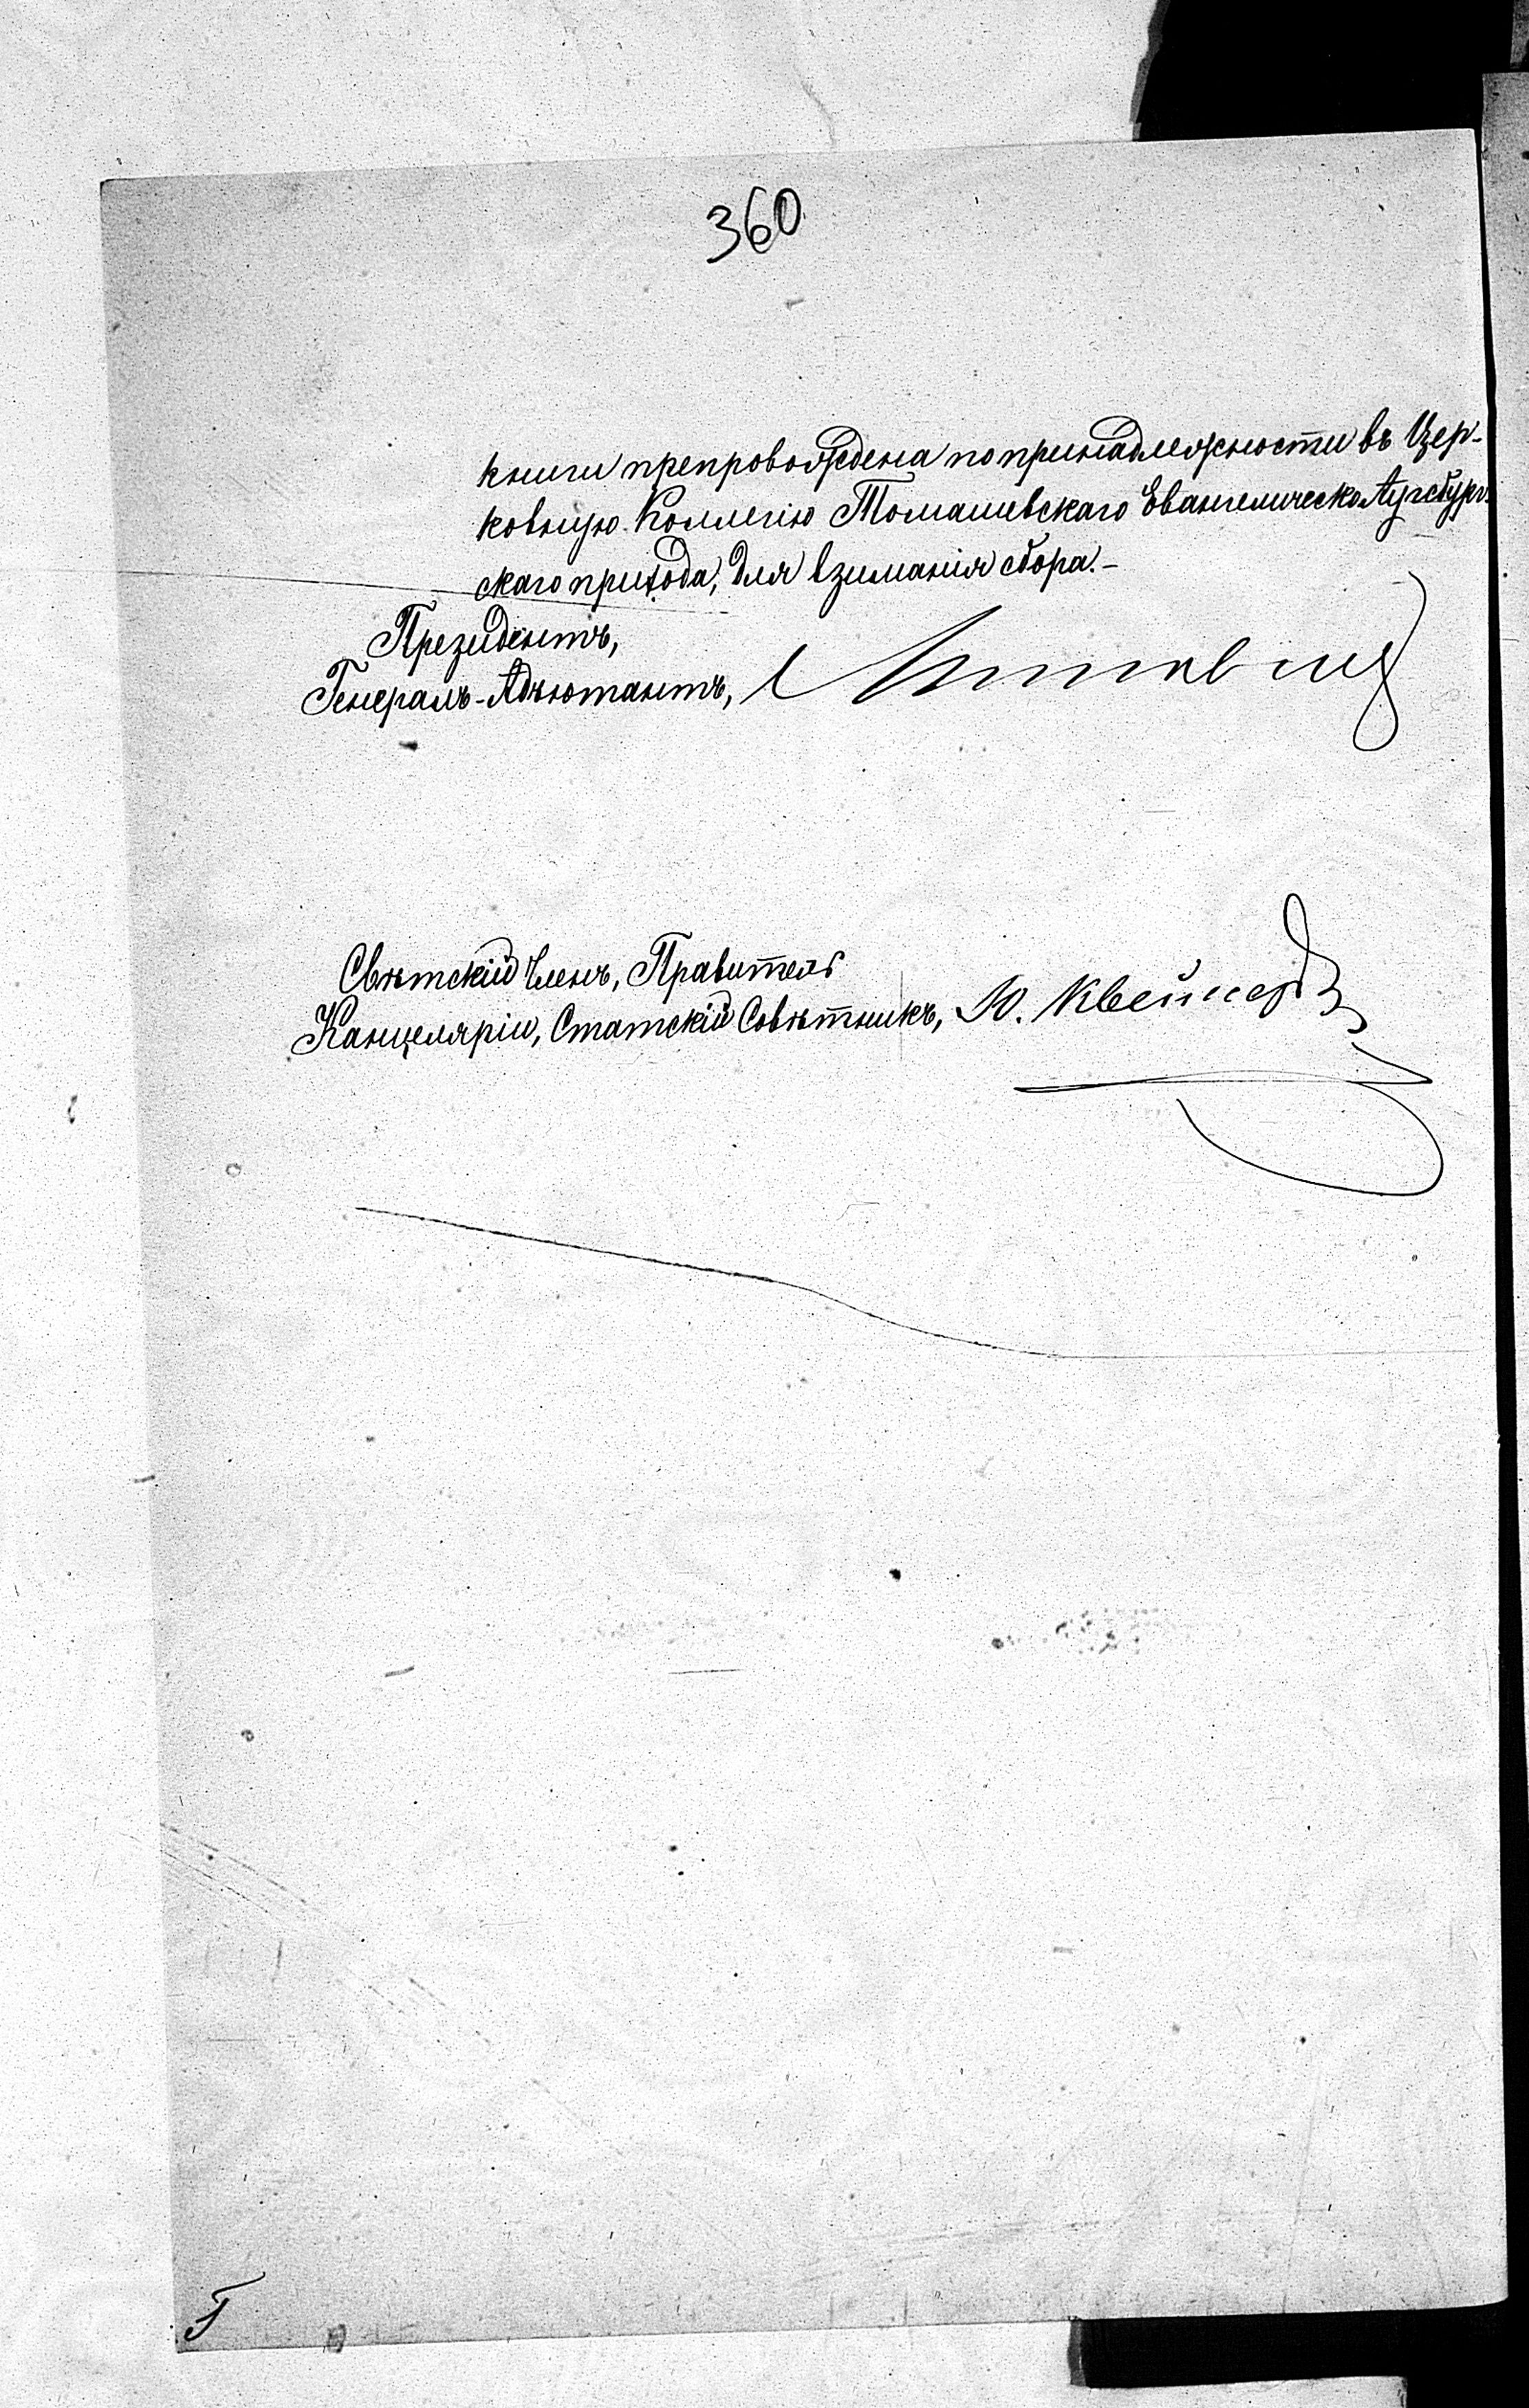 360
книги препровождена по принадлежности въ Цер-
ковную Коллегію Томашевскаго Евангелическо Аугсбург-
скаго прихода, для взиманія сбора.-
Президентъ,
Генералъ-Адъютантъ,
Свѣтскій Членъ, Правитель
Канцеляріи, Статскій Совѣтникъ, Ю.
Г